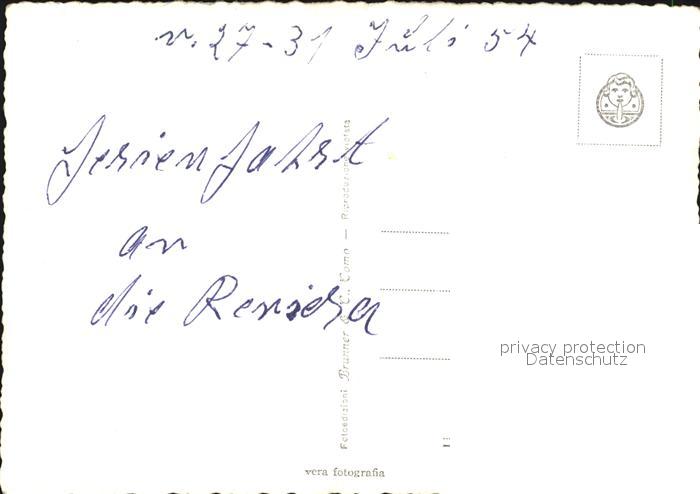 v. 27-31 Juli 54
Ferienfahrt
an
die Reviera
Fotoedizioni Brunner & C., Como — Riproduzione vietata
privacy protection
Datenschutz
vera fotografia